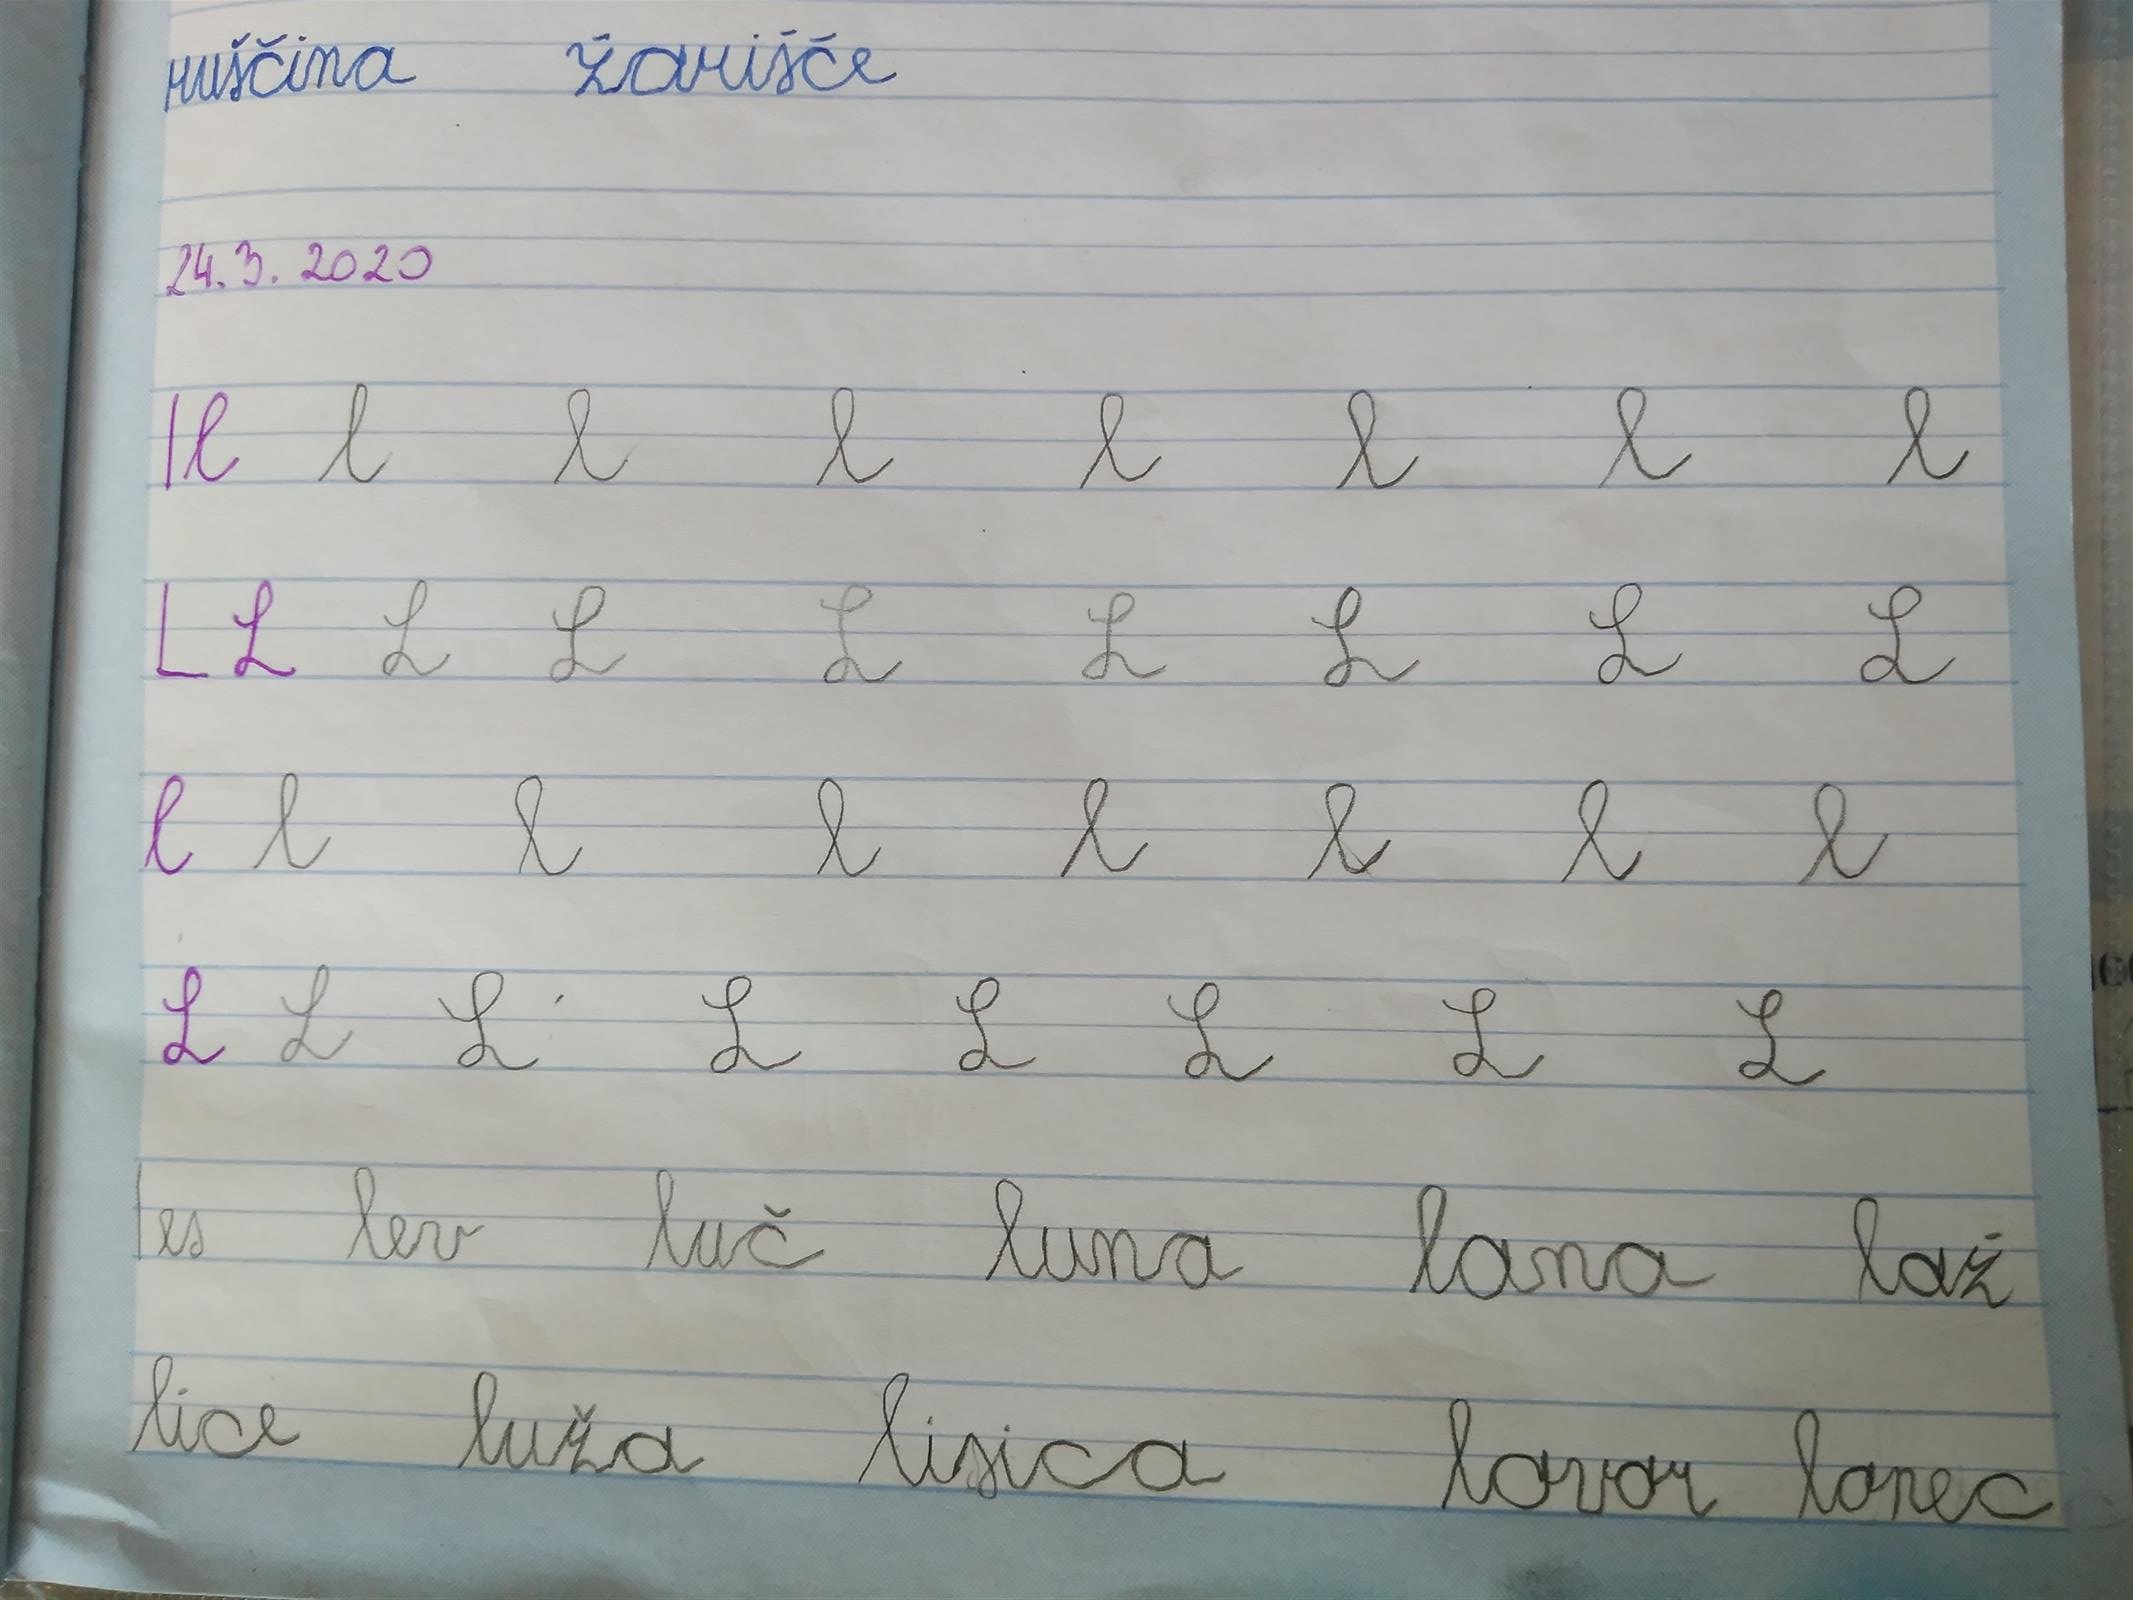 ruščina žarišče
24.3.2020
l l l l l l l l l
L L L L L L L L L
l l l l l l l l
L L L L L L L L
les lev luč luna lana laž
lice luža lisica lovor lonec